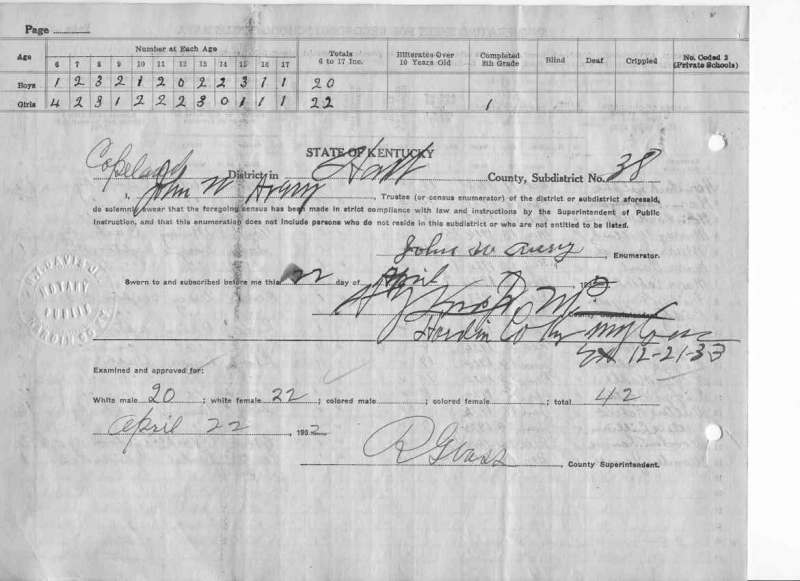 Page
Age Number at Each Age Totals 6 to 17 Inc. Illiterates Over 10 Years Old Completed 8th Grade Blind Deaf Crippled No. Coded 2 (Private Schools)
6 7 8 9 10 11 12 13 14 15 16 17
Boys 1 2 3 2 1 2 0 2 2 3 1 1 20
Girls 4 2 3 1 2 2 2 3 0 1 1 1 22 1
STATE OF KENTUCKY
Copeland District in Hart County, Subdistrict No. 38
I, John W Avery, Trustee (or census enumerator) of the district or subdistrict aforesaid,
do solemnly swear that the foregoing census has been made in strict compliance with law and instructions by the Superintendent of Public
Instruction, and that this enumeration does not include persons who do not reside in this subdistrict or who are not entitled to be listed.
John W Avery, Enumerator.
Sworn to and subscribed before me this 22 day of April, 19
County Superintendent
Hardin Co Ky My Com
Ex 12-21-33
NOTARY
PUBLIC
HARDIN CO.
Examined and approved for:
White male 20; white female 22; colored male; colored female; total 42
April 22, 1932
R Glass, County Superintendent.